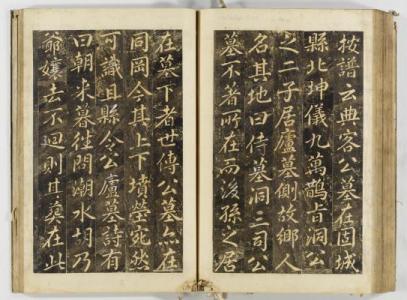 按譜云典客公墓在固城
縣北坤儀九萬鵲㫖洞公
之二子居廬墓側故鄉人
名其地曰侍墓洞三司公
墓不著所在而後孫之居
在墓下者世傳公墓亦在
同岡今其上下墳塋宛然
可識且縣令公廬墓詩有
曰朝來暮徃問潮水胡乃
爺孃去不迴則其墓在此